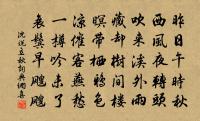 昨日午時秋
西風夜轉頭
吹來溪外雨
藏却樹間樓
暝帶栖鴉色
涼催客燕愁
一樽吟未了
衰鬢早颼颼
沈説立秋詞典網